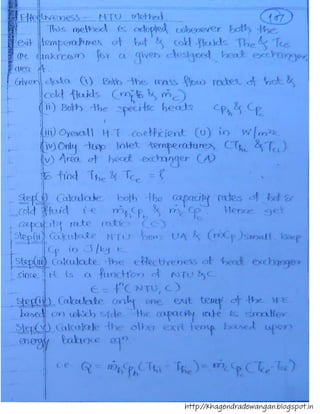 (187)
Effectiveness - NTU Method
This method is adopted, whenever both the
exit temperatures of hot & cold fluids The & Tce
are unknown for a given designed heat exchanger
area A.
Given data (i) Both the mass flow rates of hot &
cold fluids (ṁh & ṁc)
(ii) Both the specific heats Cph & Cpc
(iii) Overall H.T coefficient (U) in W/m²K
(iv) Only two inlet temperatures (Thi & Tci)
(v) Area of heat exchanger (A)
To find The & Tce = ?
Step(i) Calculate both the capacity rates of hot &
cold fluid i.e ṁhCph & ṁcCpc Hence get
capacity rate ratio (C)
Step(ii) Calculate NTU from UA & (ṁCp)small keep
Cp in J/kg K
Step(iii) Calculate the effectiveness of heat exchanger
since it is a function of NTU & C
∈ = f(NTU, C)
Step(iv) Calculate only one exit temp of the H.E.
based on which side the capacity rate is smaller
Step(v) Calculate the other exit temp based upon
energy balance eqn
i.e Q = ṁhCph(Thi - The) = ṁcCpc(Tce - Tci)
http://khagendradewangan.blogspot.in